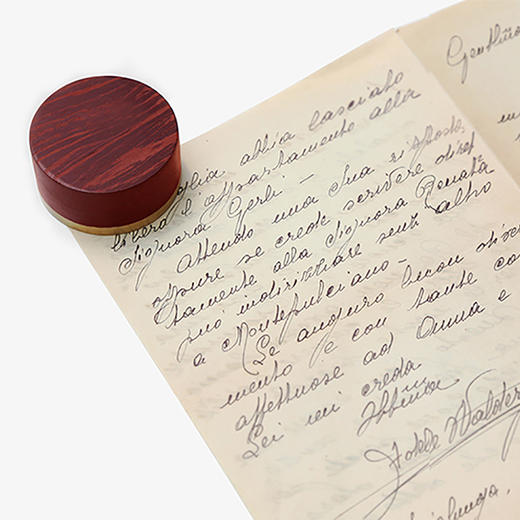 Gentil
glia abbia lasciato
libero l'appartamento alla
Signora Gerli -
Attendo una Sua risposta.
oppure se crede scrivere diret
tamente alla Signora Renata
può indirizzare senz'altro
a Montepulciano -
Le auguro buon diver
mento e con tante co
affettuose ad Anna e
Lei mi creda
Aff/ma